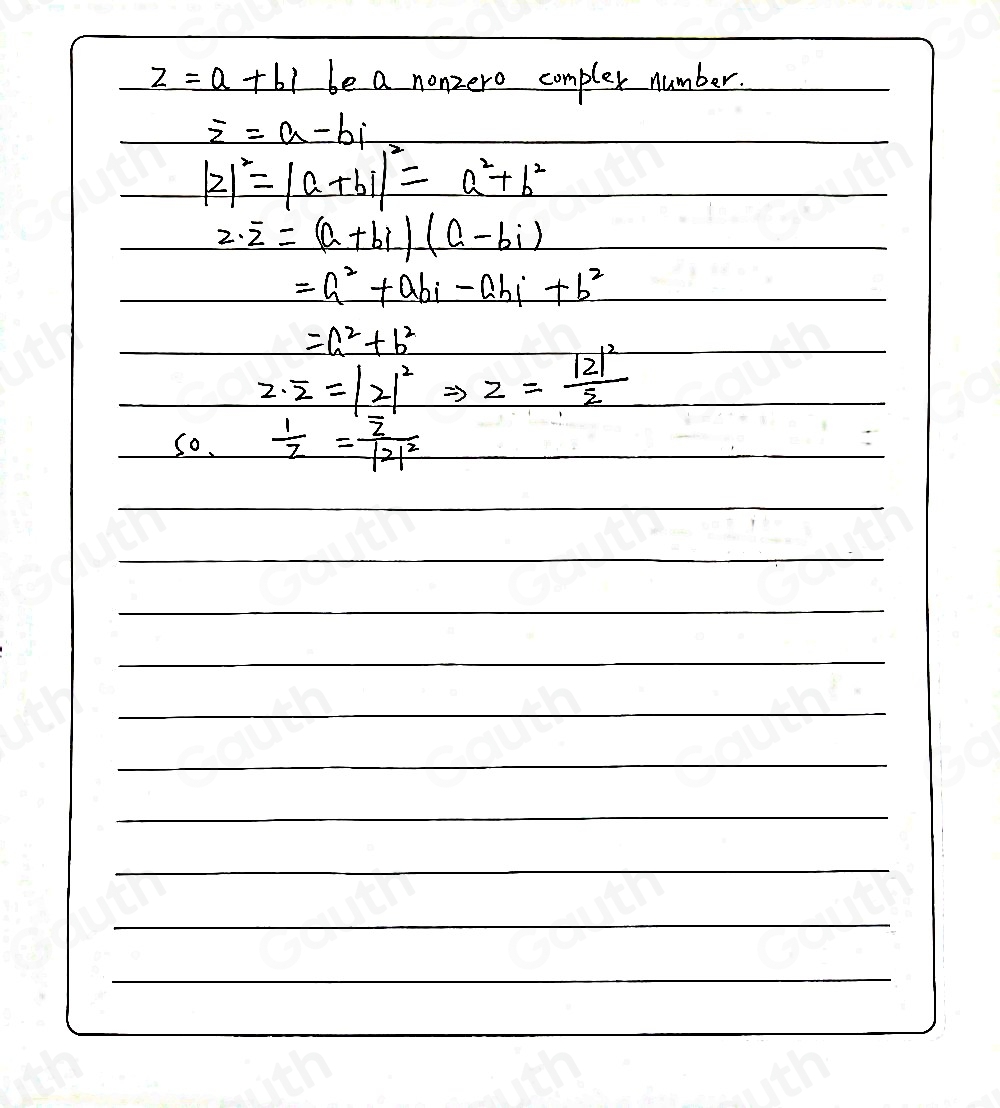 z = a + bi be a nonzero complex number.
z̄ = a - bi
|z|² = |a + bi|² = a² + b²
z·z̄ = (a + bi)(a - bi)
= a² + abi - abi + b²
= a² + b²
z·z̄ = |z|² ⇒ z = |z|²/z̄
so. 1/z = z̄/|z|²